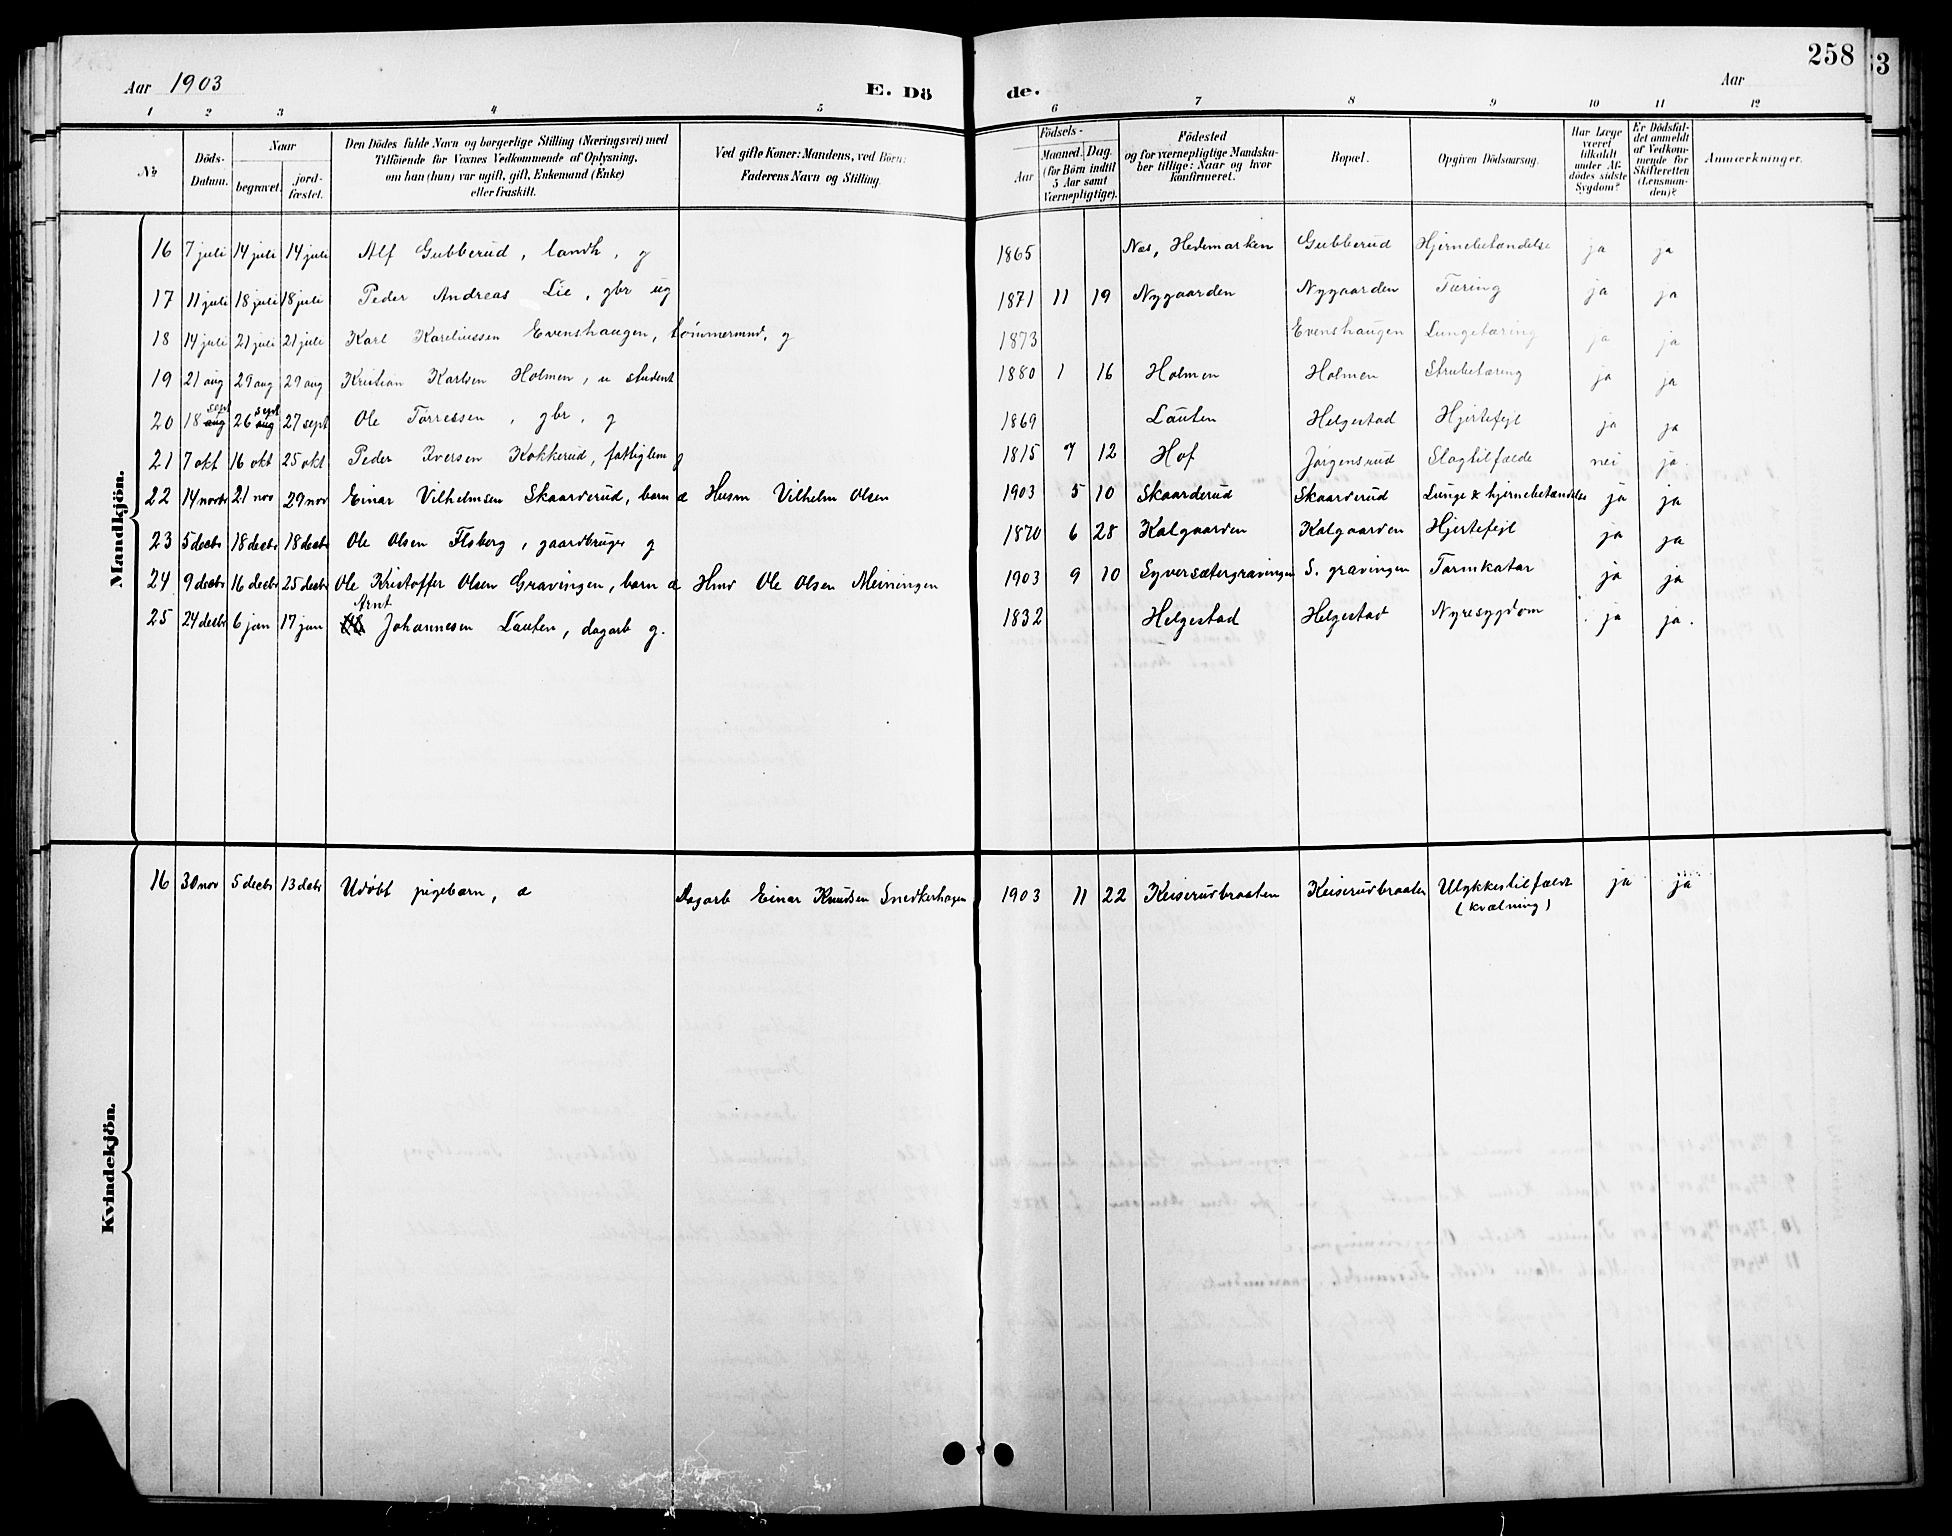 258
Aar 1903 E. Dö de. Aar
1 2 3 4 5 6 7 8 9 10 11 12
No
Döds-Datum.
Naar
begravet.
jord-fæstet.
Den Dödes fulde Navn og borgerlige Stilling (Næringsvei) med
Tilföiende for Voxnes Vedkommende af Oplysning,
om han (hun) var ugift, gift, Enkemand (Enke)
eller fraskilt.
Ved gifte Koner: Mandens, ved Börn:
Faderens Navn og Stilling.
Födsels-
Aar
Maaned. Dag.
(for Börn indtil
5 Aar samt
Værnepligtige).
Födested
og for værnepligtige Mandska-
ber tillige: Naar og hvor
konfirmeret.
Bopæl.
Opgiven Dödsaarsag.
Har Læge
været
tilkaldt
under Af-
dödes sidste
Sygdom?
Er Dödsfal-
det anmeldt
af Vedkom-
mende for
Skifteretten
(Lensman-
den)?
Anmærkninger.
Mandkjön.
16 7 juli 14 juli 14 juli Alf Gubberud, landh, g 1865 Nes, Hedemarken Gubberud Hjernebetændelse ja ja
17 11 juli 18 juli 18 juli Peder Andreas Lie, gbr ug 1871 11 19 Nygaarden Nygaarden Tæring ja ja
18 14 juli 21 juli 21 juli Karl Kareliussen Evenshaugen, tømmermnd, g 1873 Evenshaugen Lungetæring ja ja
19 21 aug 29 aug 29 aug Kristian Karlsen Holmen, u student 1880 1 16 Holmen Holmen Strubetæring ja ja
20 18 sept 26 sept 27 sept Ole Tørressen, gbr, g 1869 Lauten Helgestad Hjertefejl ja ja
21 7 okt 16 okt 25 okt Peder Iversen Kokkerud, fattiglem g 1815 7 12 Hof Jørgensrud Slagtilfælde nei ja.
22 14 novbr 21 nov 29 nov Einar Vilhelmsen Skaarderud, barn æ Husm Vilhelm Olsen 1903 5 10 Skaarderud Skaarderud Lunge & hjernebetændelse ja ja
23 5 decbr 18 decbr 18 decbr Ole Olsen Flsberg, gaardbruger g 1870 6 28 Kalgaarden Kalgaarden Hjertefejl ja ja
24 9 decbr 16 decbr 25 decbr Ole Kristoffer Olsen Gravingen, barn æ Hmd Ole Olsen Meiningen 1903 9 10 Syversætergravingen S. gravingen Tarmkatar ja ja
25 24 decbr 6 jan 17 jan Arnt Johannesen Lauten, dagarb g. 1832 Helgestad Helgestad Nyresygdom ja ja.
Kvindekjön.
16 30 nov 5 decbr 13 decbr Udøbt pigebarn, æ Dagarb Einar Knudsen Snedkerhagen 1903 11 22 Keiserudbraaten Keiserudbraaten Ulykkestilfældt ja ja
(kvælning)